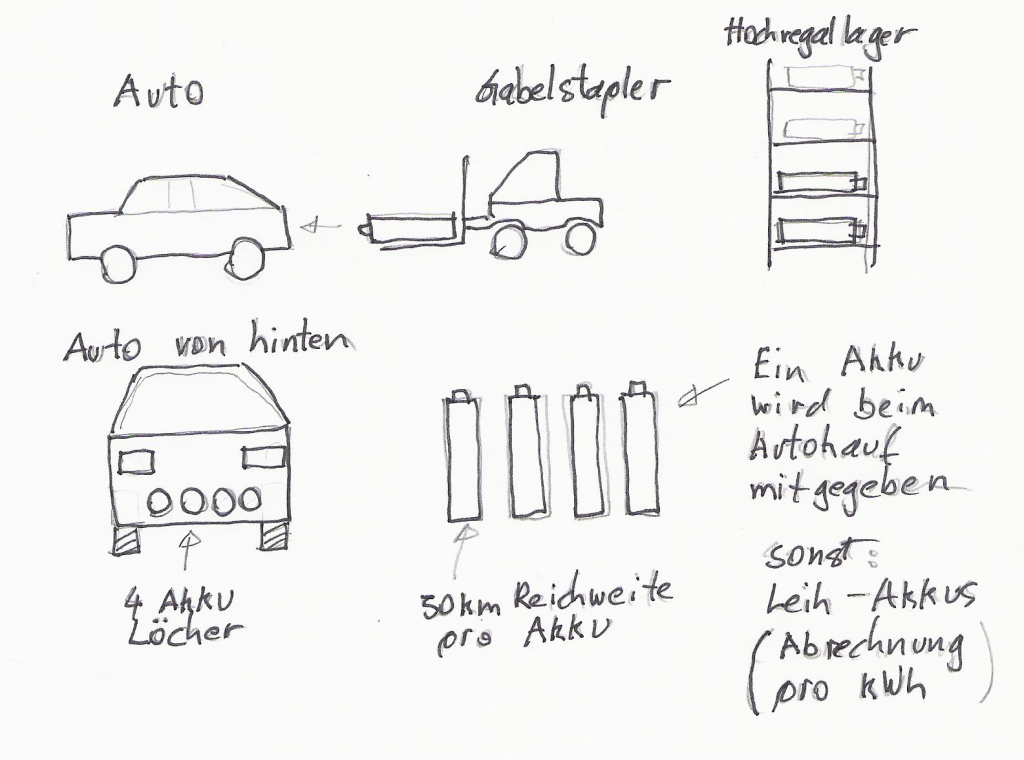 Auto
Gabelstapler
Hochregallager
Auto von hinten
4 Akku
Löcher
50km Reichweite
pro Akku
Ein Akku
wird beim
Autokauf
mitgegeben
sonst:
Leih-Akkus
(Abrechnung
pro kWh)